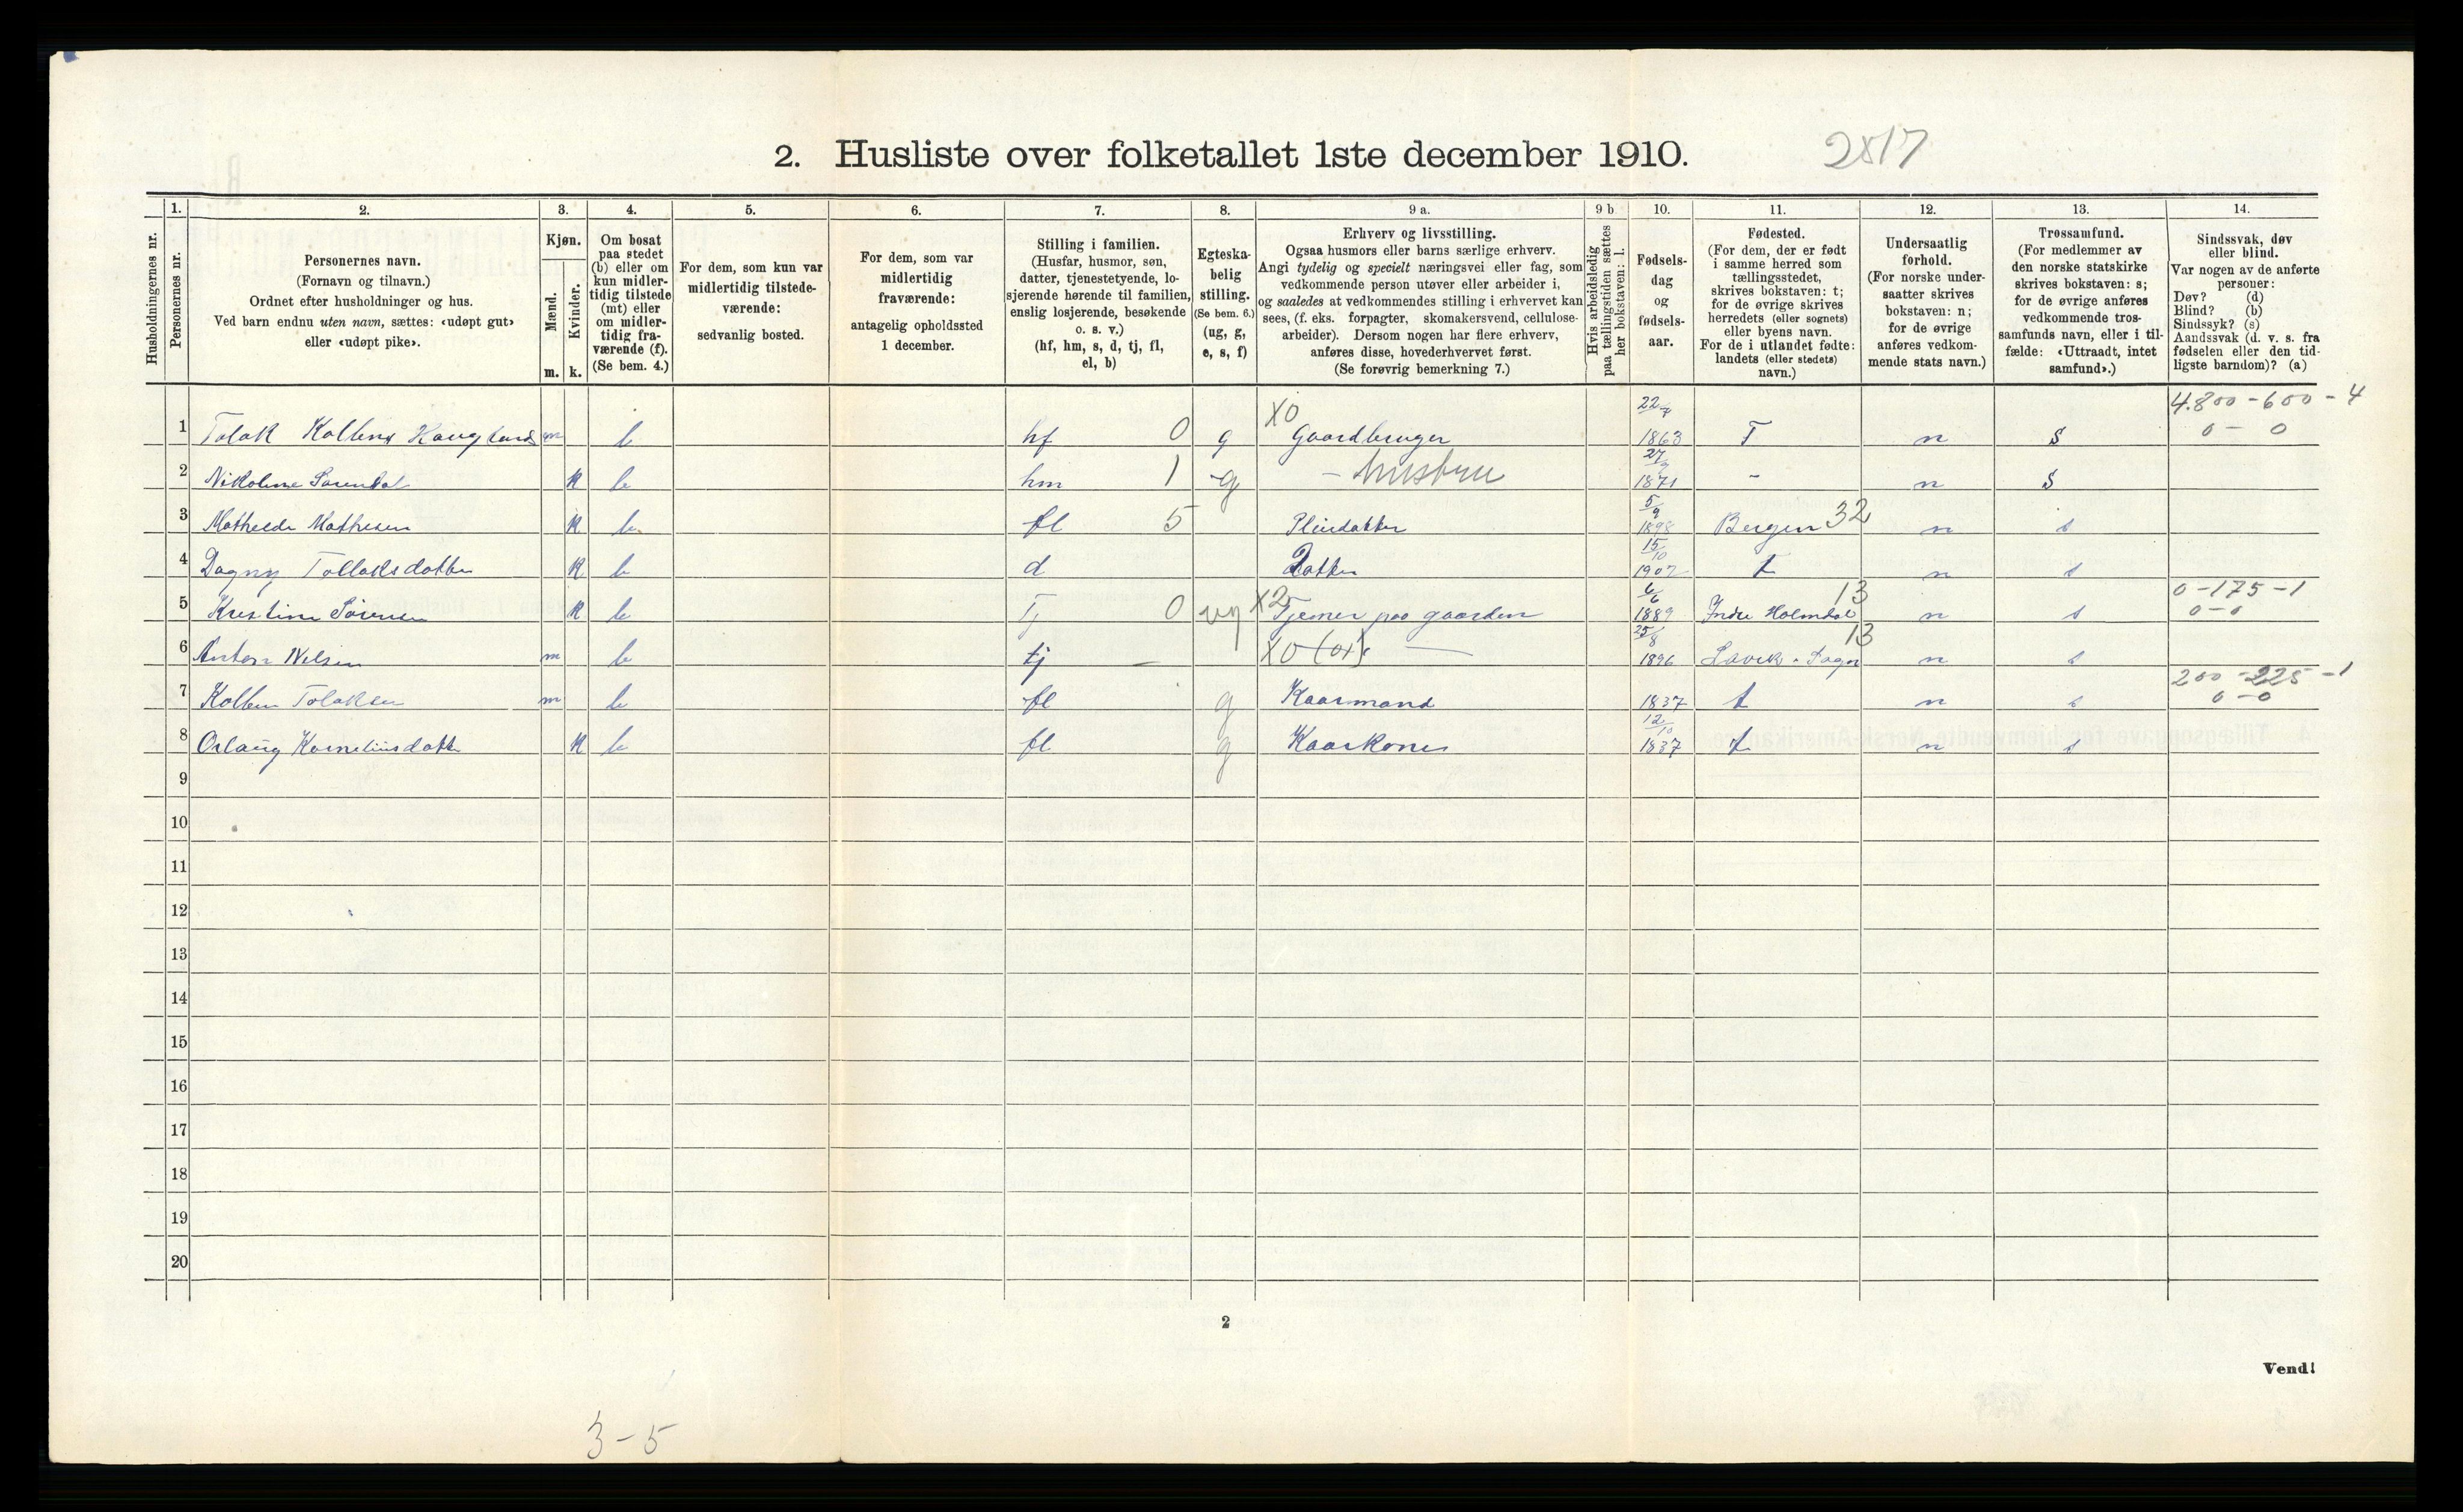 2. Husliste over folketallet 1ste december 1910. 2817
1. 2. 3. 4. 5. 6. 7. 8. 9 a. 9 b 10. 11. 12. 13. 14.
Husholdningernes nr.
Personernes nr.
Personernes navn.
(Fornavn og tilnavn.)
Ordnet efter husholdninger og hus.
Ved barn endnu uten navn, sættes: «udøpt gut»
eller «udøpt pike».
Kjøn.
Mænd.
Kvinder.
m. k.
Om bosat
paa stedet
(b) eller om
kun midler-
tidig tilstede
(mt) eller
om midler-
tidig fra-
værende (f).
(Se bem. 4.)
For dem, som kun var
midlertidig tilstede-
værende:
sedvanlig bosted.
For dem, som var
midlertidig
fraværende:
antagelig opholdssted
1 december.
Stilling i familien.
(Husfar, husmor, søn,
datter, tjenestetyende, lo-
sjerende hørende til familien,
enslig losjerende, besøkende
o. s. v.)
(hf, hm, s, d, tj, fl,
el, b)
Egteska-
belig
stilling.
(Se bem. 6.)
(ug, g,
e, s, f)
Erhverv og livsstilling.
Ogsaa husmors eller barns særlige erhverv.
Angi tydelig og specielt næringsvei eller fag, som
vedkommende person utøver eller arbeider i,
og saaledes at vedkommendes stilling i erhvervet kan
sees, (f. eks. forpagter, skomakersvend, cellulose-
arbeider). Dersom nogen har flere erhverv,
anføres disse, hovederhvervet først.
(Se forøvrig bemerkning 7.)
Hvis arbeidsledig
paa tællingstiden sættes
her bokstaven: l.
Fødsels-
dag
og
fødsels-
aar.
Fødested.
(For dem, der er født
i samme herred som
tællingsstedet,
skrives bokstaven: t;
for de øvrige skrives
herredets (eller sognets)
eller byens navn.
For de i utlandet fødte:
landets (eller stedets)
navn.)
Undersaatlig
forhold.
(For norske under-
saatter skrives
bokstaven: n;
for de øvrige
anføres vedkom-
mende stats navn.)
Trossamfund.
(For medlemmer av
den norske statskirke
skrives bokstaven: s;
for de øvrige anføres
vedkommende tros-
samfunds navn, eller i til-
fælde: «Uttraadt, intet
samfund».)
Sindssvak, døv
eller blind.
Var nogen av de anførte
personer:
Døv? (d)
Blind? (b)
Sindssyk? (s)
Aandssvak (d. v. s. fra
fødselen eller den tid-
ligste barndom)? (a)
X0 22/7 4.800-600-4
1 Tolak Kolbens Haugland m b hf 0 g Gaardbruger 1863 T n S 0 - 0
2 Nikoline k b hm 1 g - hustru 27/7 1871 - n S
3 Mathilde Mathisen k b fl 5 Pleiedatter 5/9 1898 Bergen 32 n s
4 Dagny Tollaksdatter k b d Datter 15/10 1907 t n s
5 Kristine Sørensen k b Tj 0 ug X2 Tjener paa gaarden 6/6 1889 Indre Holmedal 13 n s 0-175-1 0-0
6 Anton Nilsen m b tj — X0 (01) — 25/8 1896 Lavik 13 n s
7 Kolben Tolaksen m b fl g Kaarmand 1837 t n s 200-225-1 0-0
8 Oslaug Korneliusdatter k b fl g Kaarkone 12/10 1837 t n s
9
10
11
12
13
14
15
16
17
18
19
20
2
Vend!
3-5